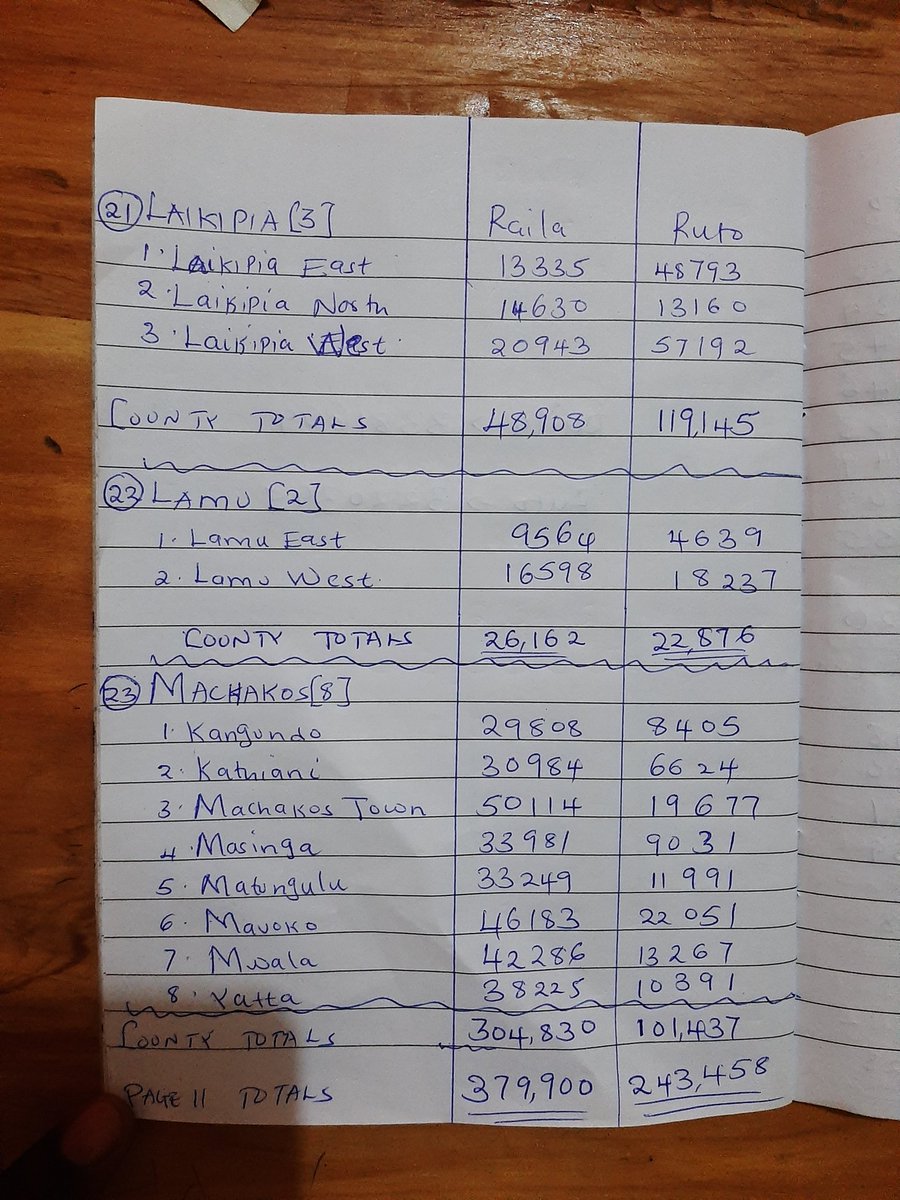 21 LAIKIPIA [3] Raila Ruto
1. LAikipia East 13335 48793
2. Laikipia North 14630 13160
3. Laikipia West. 20943 57192
COUNTY TOTALS 48,908 119,145
23 LAMU [2]
1. Lamu East 9564 4639
2. Lamu West. 16598 18237
COUNTY TOTALS 26,162 22,876
23 MACHAKOS [8]
1. Kangundo 29808 8405
2. Kathiani 30984 6624
3. Machakos Town 50114 19677
4. Masinga 33981 9031
5. Matungulu 33249 11991
6. Mavoko 46183 22051
7. Mwala 42286 13267
8. Yatta 38225 10391
COUNTY TOTALS 304,830 101,437
PAGE 11 TOTALS 379,900 243,458